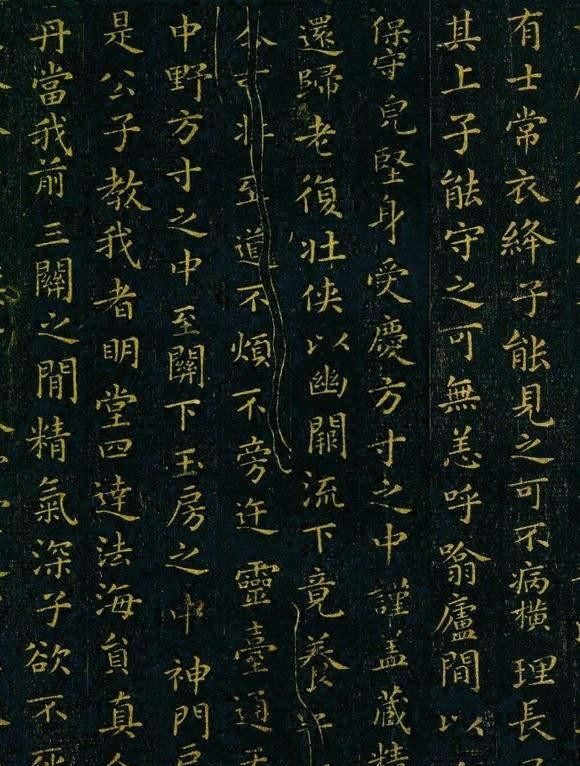 有士常衣絳子能見之可不病橫理長
其上子能守之可無恙呼噏廬間以
保守皃堅身受慶方寸之中謹蓋藏精
還歸老復壯俠以幽闕流下竟養
至道不煩不旁迕靈臺通天
中野方寸之中至關下玉房之中神門戶
是公子教我者眀堂四達法海員真人
丹當我前三關之閒精氣深子欲不死